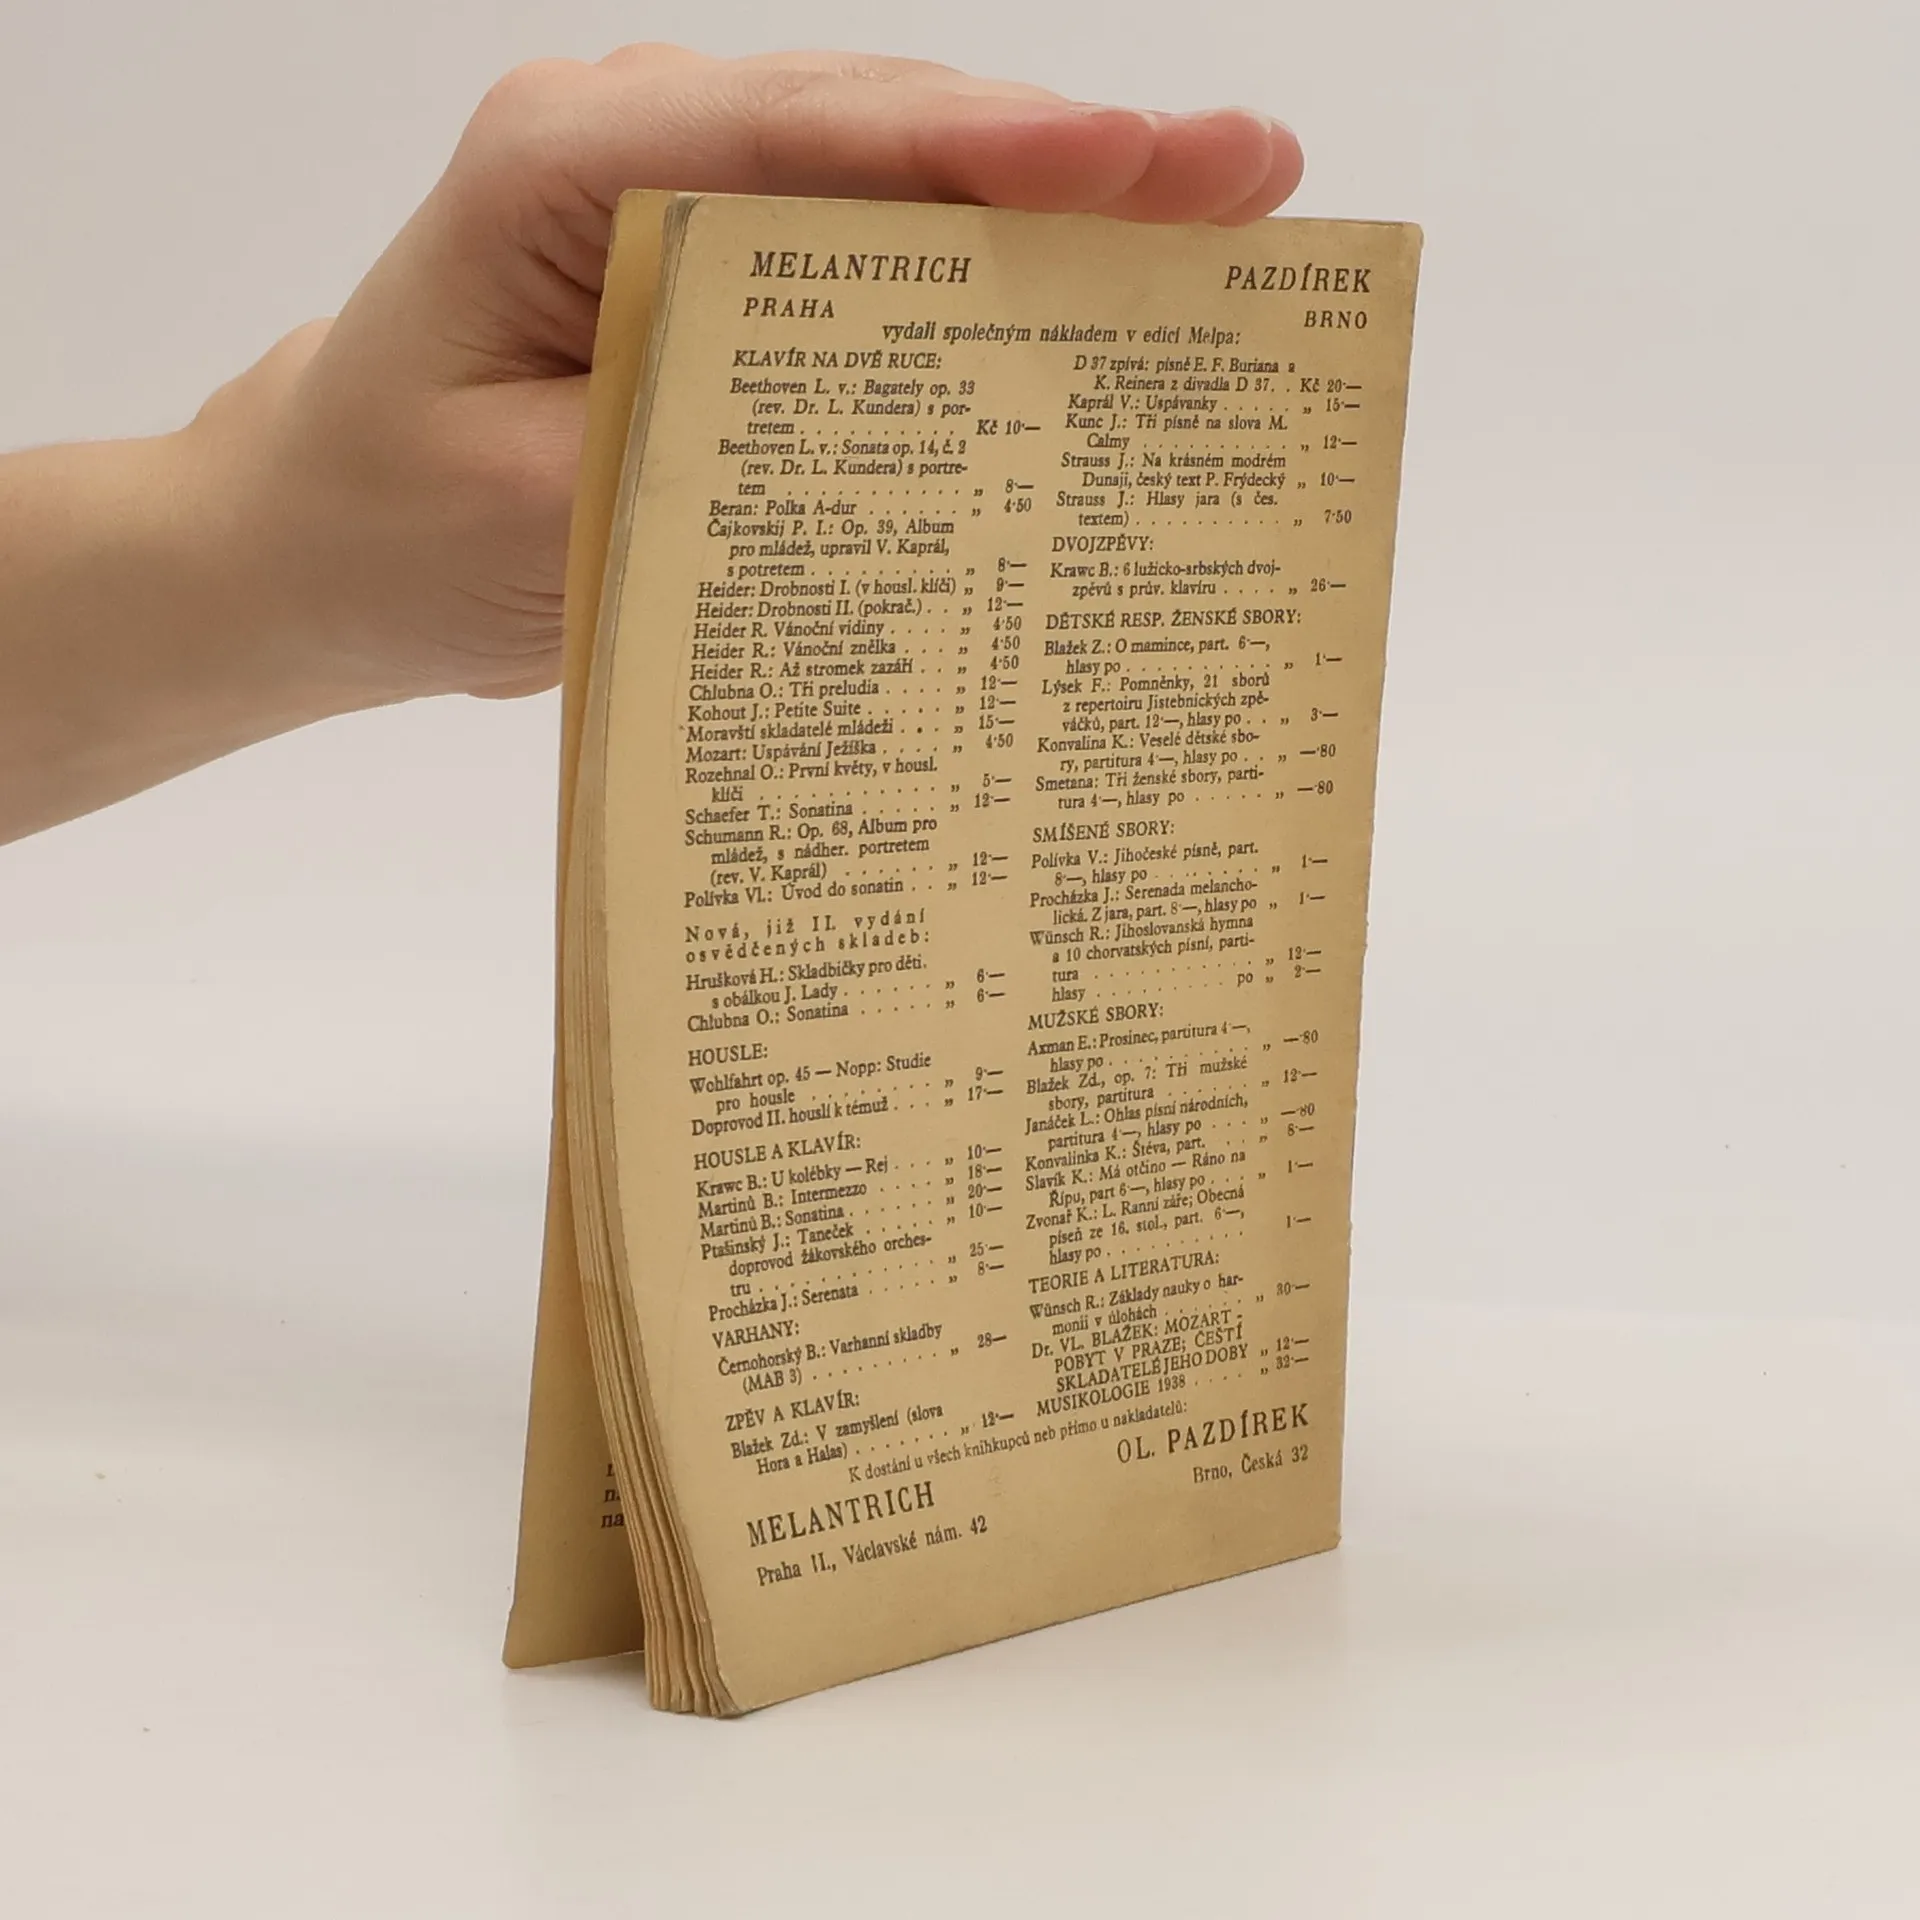 MELANTRICH
PRAHA
PAZDÍREK
BRNO
vydali společným nákladem v edici Melpa:
KLAVÍR NA DVĚ RUCE:
Beethoven L. v.: Bagately op. 33
(rev. Dr. L. Kundera) s por-
tretem . . . . . . . . . . Kč 10·—
Beethoven L. v.: Sonata op. 14, č. 2
(rev. Dr. L. Kundera) s portre-
tem . . . . . . . . . . . „ 8·—
Beran: Polka A-dur . . . . . . „ 4·50
Čajkovskij P. I.: Op. 39, Album
pro mládež, upravil V. Kaprál,
s potretem . . . . . . . . . „ 8·—
Heider: Drobnosti I. (v housl. klíči) „ 9·—
Heider: Drobnosti II. (pokrač.) . . „ 12·—
Heider R. Vánoční vidiny . . . . „ 4·50
Heider R.: Vánoční znělka . . . „ 4·50
Heider R.: Až stromek zazáří . . „ 4·50
Chlubna O.: Tři preludia . . . . „ 12·—
Kohout J.: Petite Suite . . . . . „ 12·—
Moravští skladatelé mládeži . . . „ 15·—
Mozart: Uspávání Ježíška . . . . „ 4·50
Rozehnal O.: První květy, v housl.
klíči . . . . . . . . . . . „ 5·—
Schaefer T.: Sonatina . . . . . „ 12·—
Schumann R.: Op. 68, Album pro
mládež, s nádher. portretem
(rev. V. Kaprál) . . . . . . „ 12·—
Polívka Vl.: Úvod do sonatin . . „ 12·—
Nová, již II. vydání
osvědčených skladeb:
Hrušková H.: Skladbičky pro děti.
s obálkou J. Lady . . . . . . „ 6·—
Chlubna O.: Sonatina . . . . . „ 6·—
HOUSLE:
Wohlfahrt op. 45 — Nopp: Studie
pro housle . . . . . . . . „ 9·—
Doprovod II. houslí k témuž . . . „ 17·—
HOUSLE A KLAVÍR:
Krawc B.: U kolébky — Rej . . . „ 10·—
Martinů B.: Intermezzo . . . . „ 18·—
Martinů B.: Sonatina . . . . . . „ 20·—
Ptašinský J.: Taneček . . . . . „ 10·—
doprovod žákovského orches-
tru . . . . . . . . . . . . „ 25·—
Procházka J.: Serenata . . . . . „ 8·—
VARHANY:
Černohorský B.: Varhanní skladby
(MAB 3) . . . . . . . . . „ 28—
ZPĚV A KLAVÍR:
Blažek Zd.: V zamyšlení (slova
Hora a Halas) . . . . . . . „ 12·—
D 37 zpívá: písně E. F. Buriana a
K. Reinera z divadla D 37. . Kč 20·—
Kaprál V.: Uspávanky . . . . . „ 15·—
Kunc J.: Tři písně na slova M.
Calmy . . . . . . . . . . „ 12·—
Strauss J.: Na krásném modrém
Dunaji, český text P. Frýdecký „ 10·—
Strauss J.: Hlasy jara (s čes.
textem) . . . . . . . . . . „ 7·50
DVOJZPĚVY:
Krawc B.: 6 lužicko-srbských dvoj-
zpěvů s prův. klavíru . . . . „ 26·—
DĚTSKÉ RESP. ŽENSKÉ SBORY:
Blažek Z.: O mamince, part. 6·—,
hlasy po . . . . . . . . . . „ 1·—
Lýsek F.: Pomněnky, 21 sborů
z repertoiru Jistebnických zpě-
váčků, part. 12·—, hlasy po . . „ 3·—
Konvalina K.: Veselé dětské sbo-
ry, partitura 4·—, hlasy po . . „ —·80
Smetana: Tři ženské sbory, parti-
tura 4·—, hlasy po . . . . . „ —·80
SMÍŠENÉ SBORY:
Polívka V.: Jihočeské písně, part.
8·—, hlasy po . . . . . . . . „ 1·—
Procházka J.: Serenada melancho-
lická. Z jara, part. 8·—, hlasy po „ 1·—
Wünsch R.: Jihoslovanská hymna
a 10 chorvatských písní, parti-
tura . . . . . . . . . . . „ 12·—
hlasy . . . . . . . . . po „ 2·—
MUŽSKÉ SBORY:
Axman E.: Prosinec, partitura 4·—,
hlasy po . . . . . . . . . . „ —·80
Blažek Zd., op. 7: Tři mužské
sbory, partitura . . . . . . . „ 12·—
Janáček L.: Ohlas písní národních,
partitura 4·—, hlasy po . . . „ —·80
Konvalinka K.: Štěva, part. . . „ 8·—
Slavík K.: Má otčino — Ráno na
Řípu, part 6·—, hlasy po . . . „ 1·—
Zvonař K.: L. Ranní záře; Obecná
píseň ze 16. stol., part. 6·—,
hlasy po . . . . . . . . . . 1·—
TEORIE A LITERATURA:
Wünsch R.: Základy nauky o har-
monii v úlohách . . . . . . „ 30·—
Dr. VL. BLAŽEK: MOZART -
POBYT V PRAZE; ČEŠTÍ
SKLADATELÉ JEHO DOBY „ 12·—
MUSIKOLOGIE 1938 . . . . „ 32·—
K dostání u všech knihkupců neb přímo u nakladatelů:
MELANTRICH
Praha II., Václavské nám. 42
OL. PAZDÍREK
Brno, Česká 32